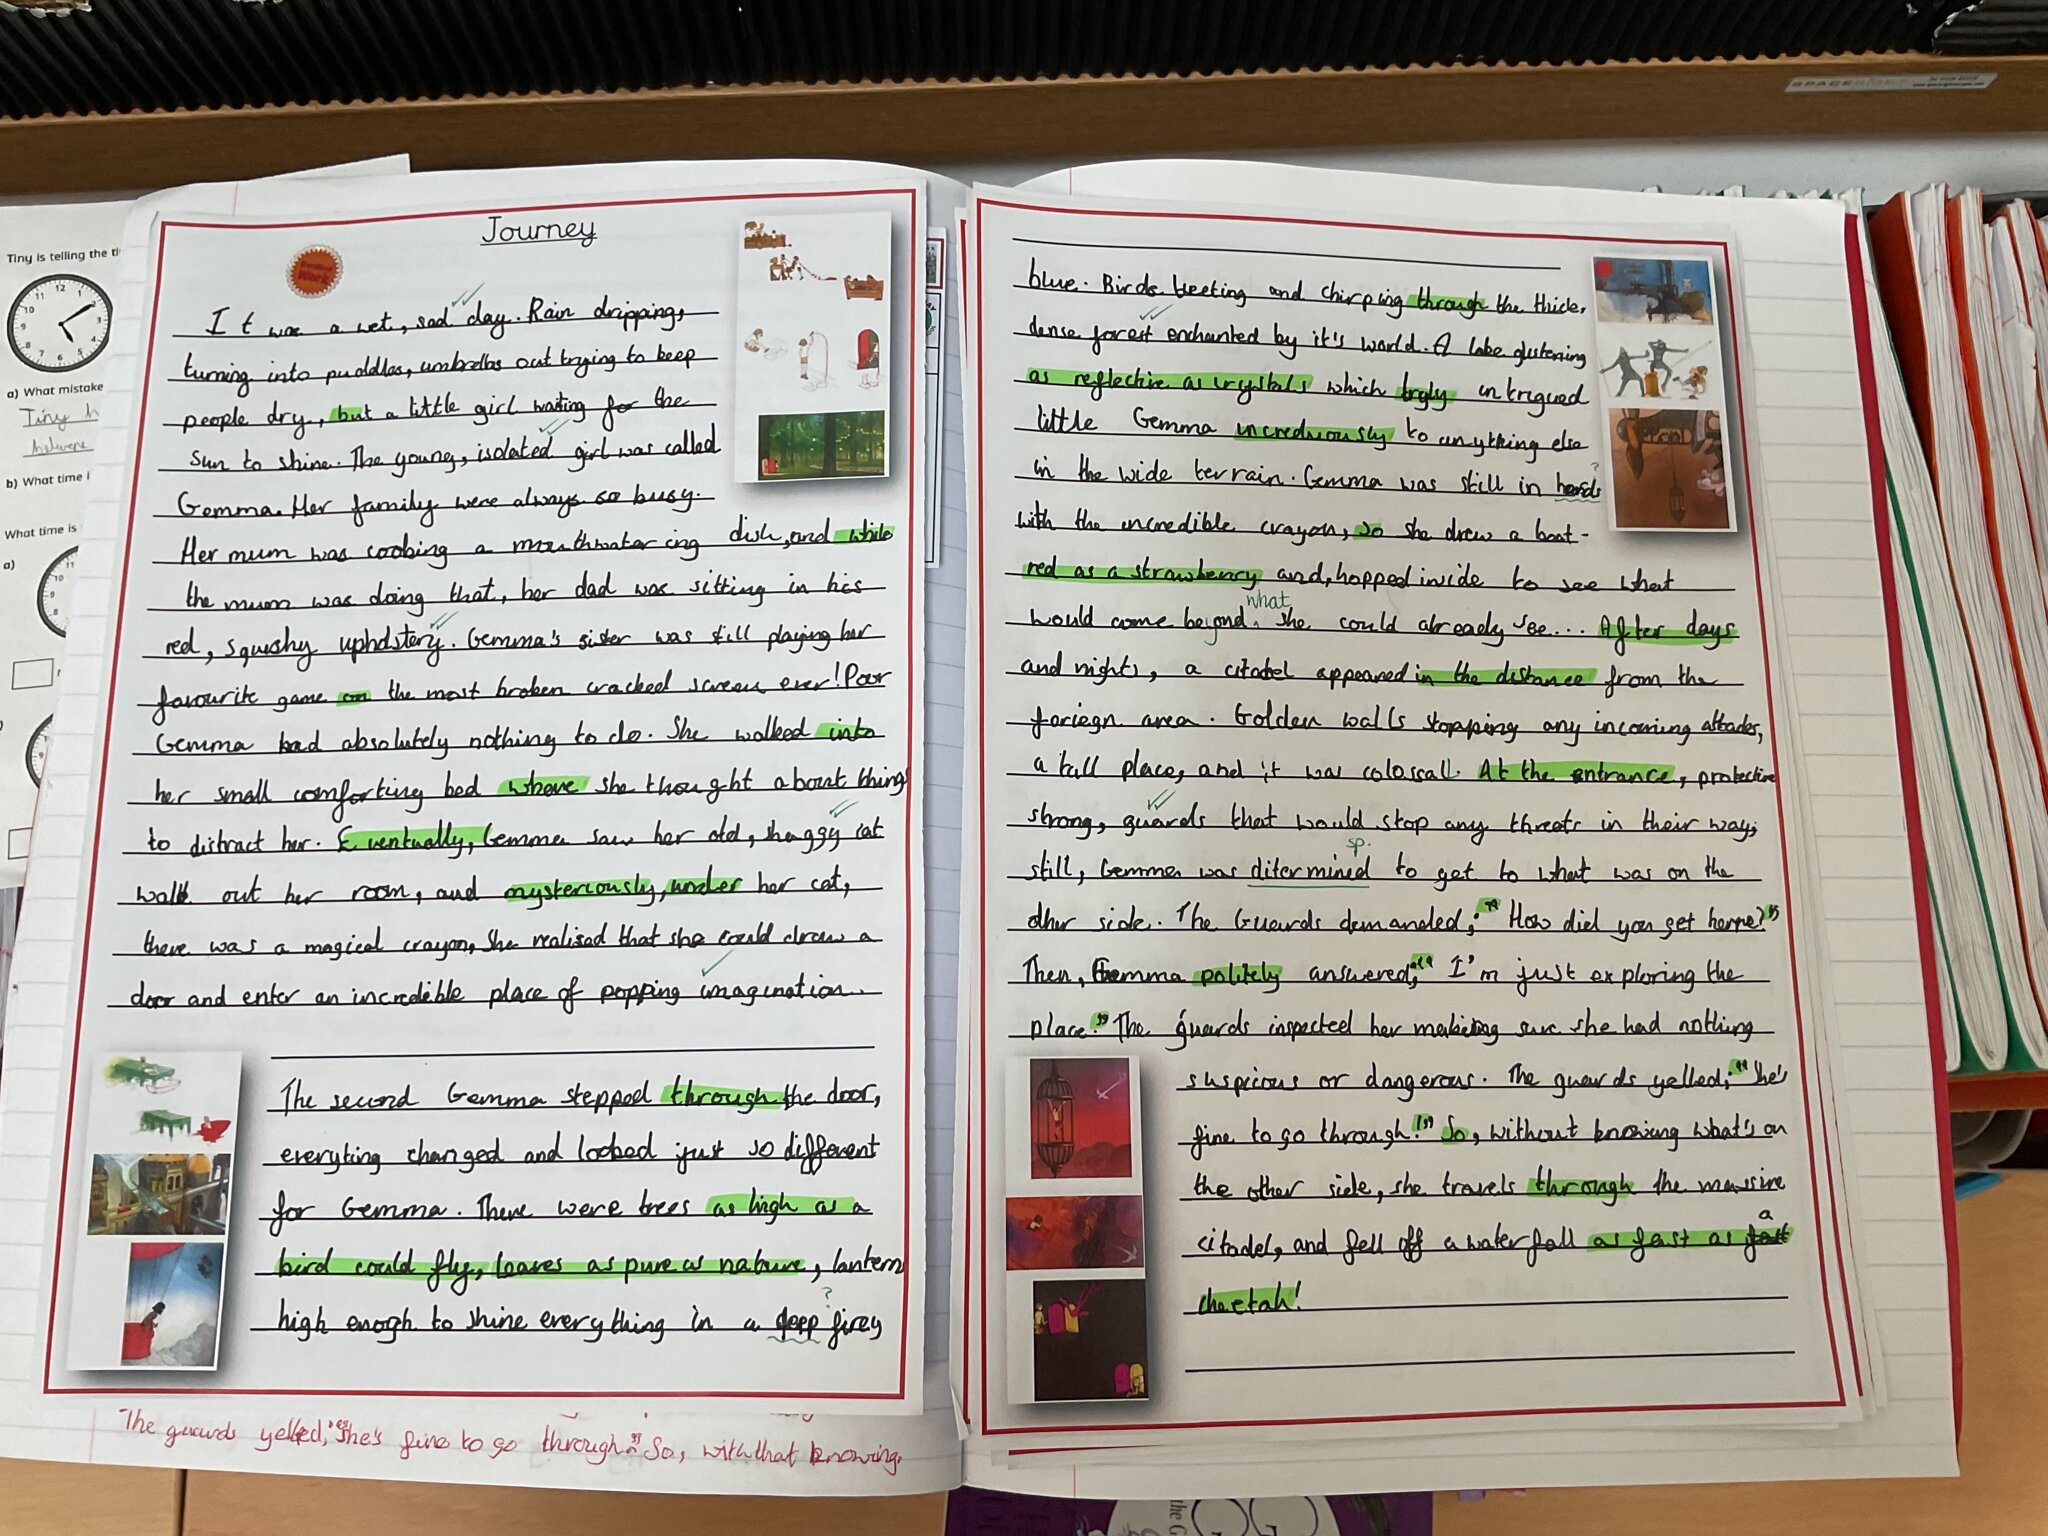 Journey
It was a wet, sad day. Rain dripping,
turning into puddles, umbrellas out trying to keep
people dry, but a little girl waiting for the
sun to shine. The young, isolated girl was called
Gemma. Her family were always so busy.
Her mum was cooking a mouthwatering dish, and while
the mum was doing that, her dad was sitting in his
red, squishy upholstery. Gemma's sister was still playing her
favourite game on the most broken cracked screen ever! Poor
Gemma had absolutely nothing to do. She walked into
her small comforting bed where she thought about things
to distract her. Eventually, Gemma saw her old, shaggy cat
walk out her room, and mysteriously, under her cat,
there was a magical crayon, She realised that she could draw a
door and enter an incredible place of popping imagination.
The second Gemma stepped through the door,
everyting changed and looked just so different
for Gemma. There were trees as high as a
bird could fly, leaves as pure as nature, lantern
high enogh to shine everything in a deep firey
?
The guards yelled, "She's fine to go through." So, with that knowing,
blue. Birds tweeting and chirping through the thick,
dense forest enchanted by it's world. A lake glistening
as reflective as crystals which truly intrigued
little Gemma increduously to anything else
in the wide terrain. Gemma was still in hands
?
with the incredible crayon, so she drew a boat-
red as a strawberry and, hopped inside to see what
would come beyond what she could already see... After days
and nights, a citadel appeared in the distance from the
foriegn area. Golden walls stopping any incoming attacks,
a tall place, and it was colossal. At the entrance, protective
strong, guards that would stop any threats in their way;
sp.
still, Gemma was ditermined to get to what was on the
other side. The Guards demanded, "How did you get here?"
Then, Gemma politely answered, "I'm just exploring the
place." The guards inspected her making sure she had nothing
suspicious or dangerous. The guards yelled, "She's
fine to go through!" So, without knowing what's on
the other side, she travels through the massive
citadel, and fell off a waterfall as fast as a
cheetah!
Tiny is telling the ti
12
11
1
10
2
9
3
8
4
7
5
6
a) What mistake
Tiny h
b) What time i
What time is
a)